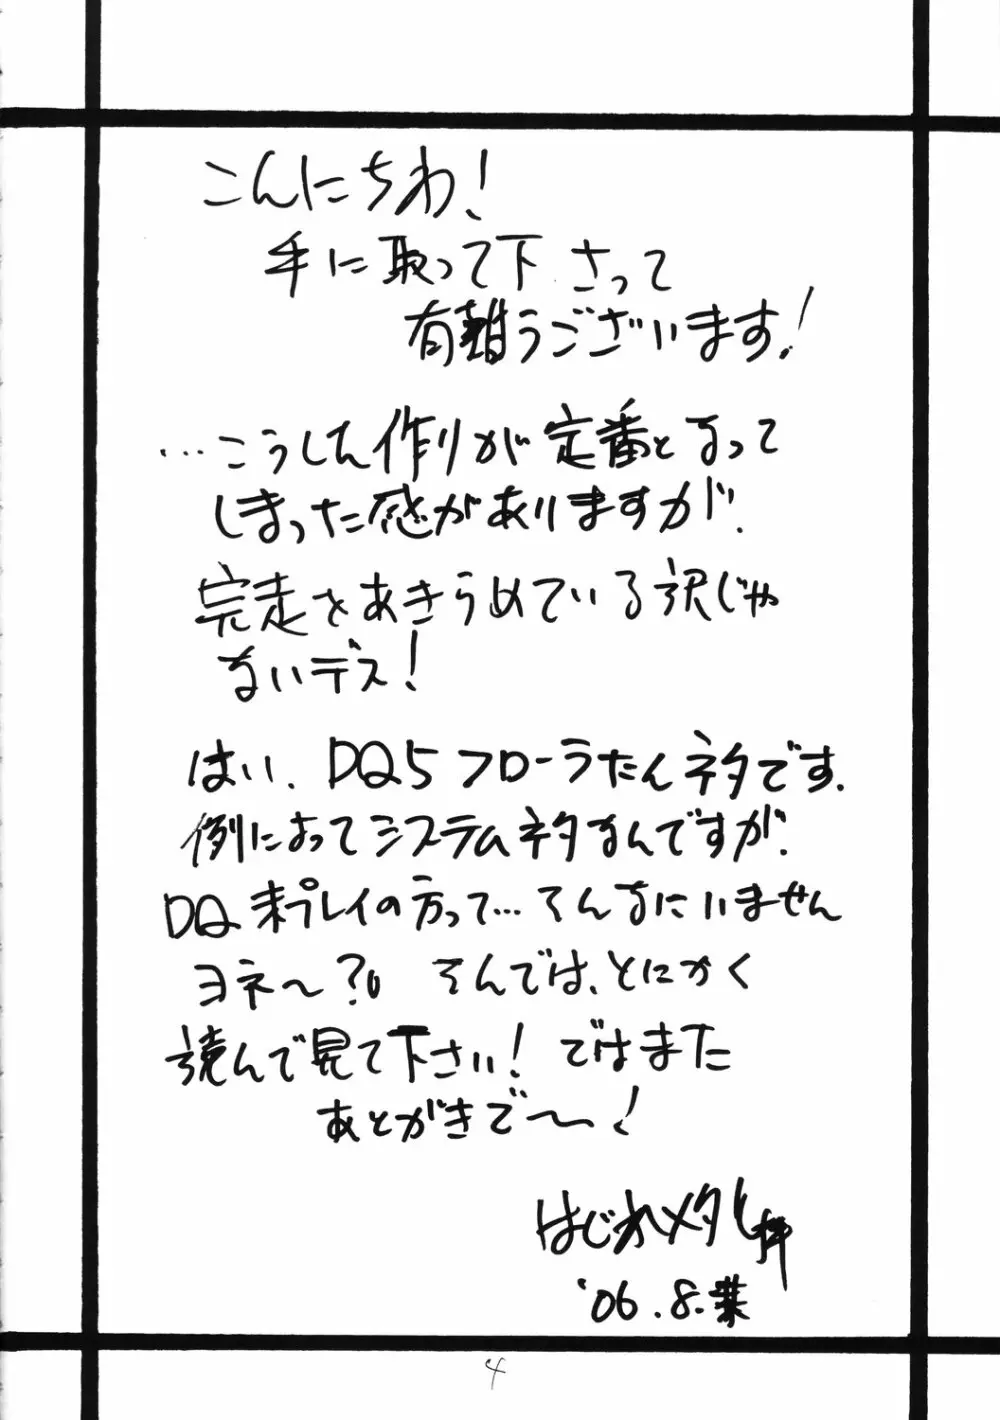 こんにちわ!
手に取って下さって
有難うございます!
…こうした作りが定番となって
しまった感がありますが.
完走をあきらめている訳じゃ
ないデス!
はい. DQ5フローラたんネタです.
例によってシステムネタなんですが.
DQ未プレイの方って…そんなにいません
ヨネ〜?。 そんでは、とにかく
読んで見て下さい! ではまた
あとがきで〜!
はじめメタル拝
'06.8.
4